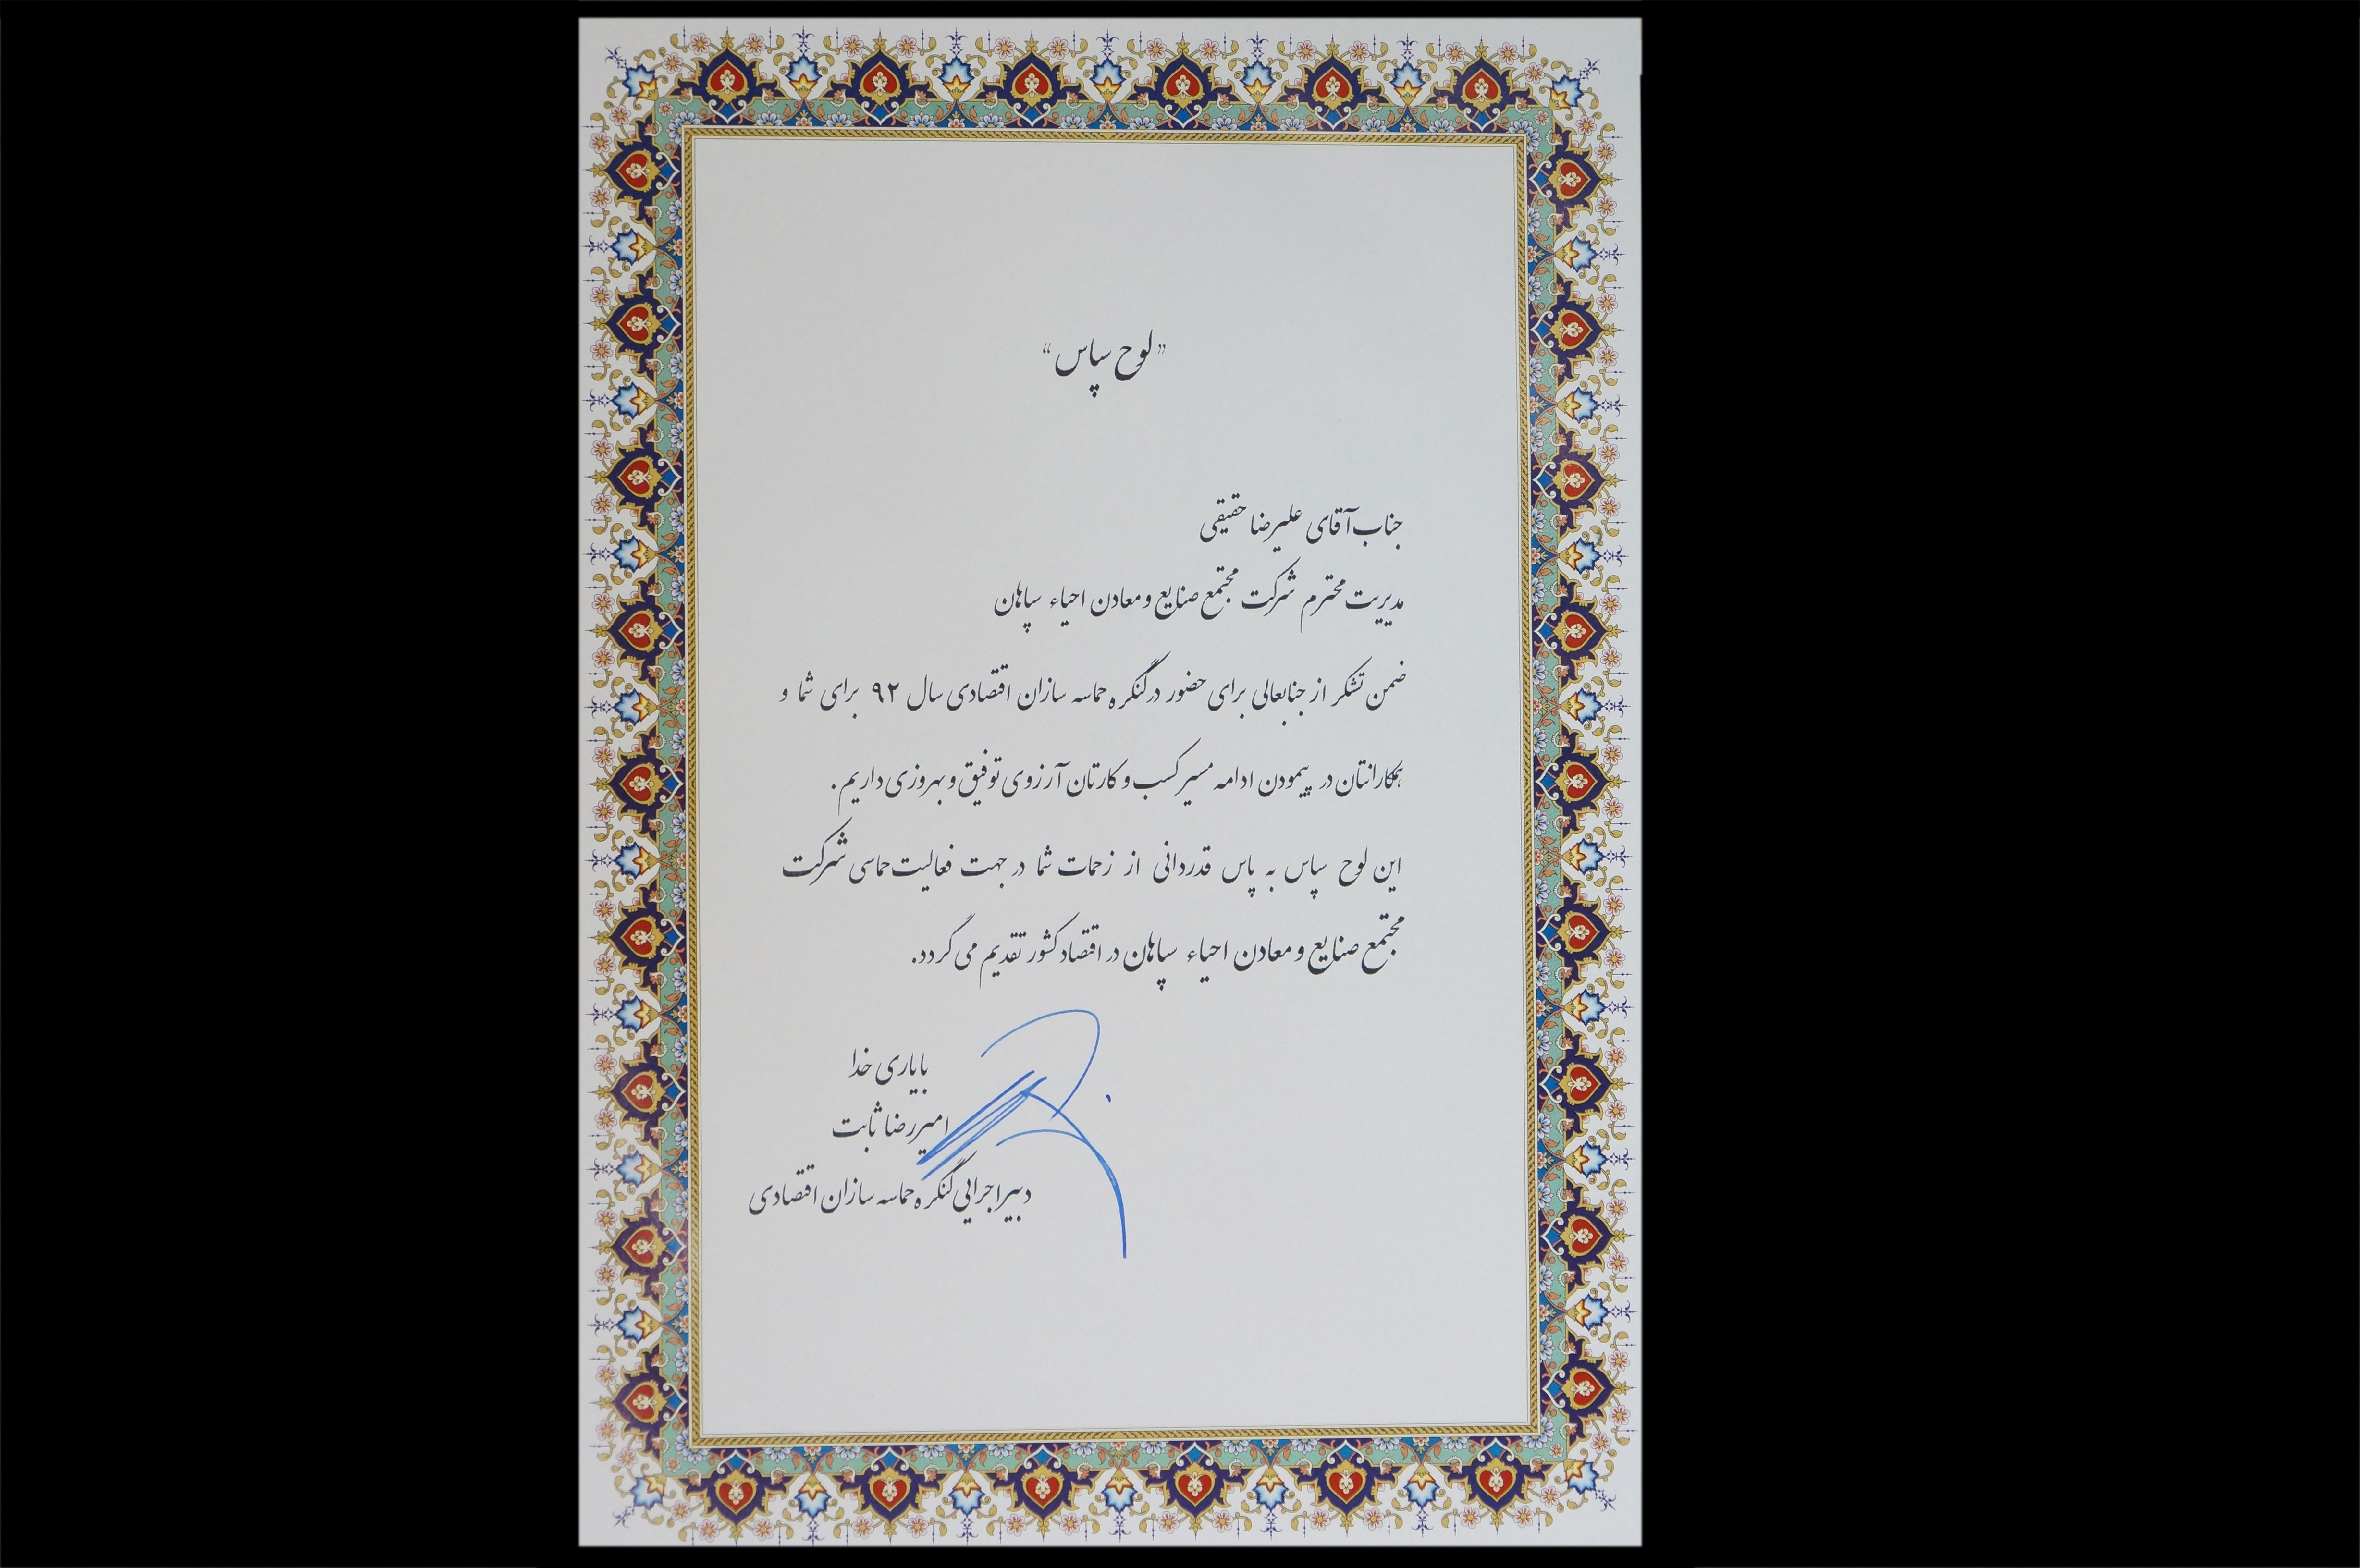 " لوح سپاس "
جناب آقای علیرضا حقیقی
مدیریت محترم شرکت مجتمع صنایع و معادن احیاء سپاهان
ضمن تشکر از جنابعالی برای حضور در کنگره حماسه سازان اقتصادی سال ۹۲ برای شما و
همکارانتان در پیمودن ادامه مسیر کسب و کارتان آرزوی توفیق و بهروزی داریم.
این لوح سپاس به پاس قدردانی از زحمات شما در جهت فعالیت حماسی شرکت
مجتمع صنایع و معادن احیاء سپاهان در اقتصاد کشور تقدیم می گردد.
با یاری خدا
امیررضا ثابت
دبیر اجرایی کنگره حماسه سازان اقتصادی